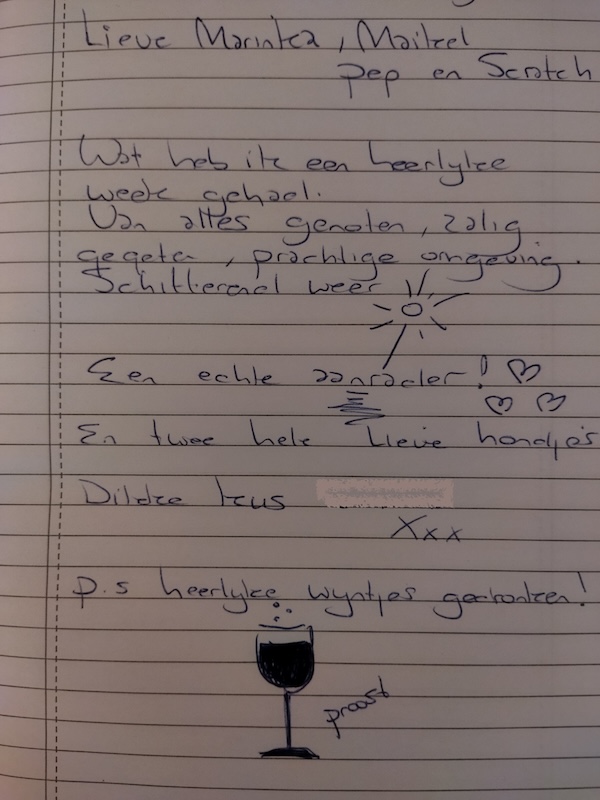 Lieve Marinka, Maikel
pep en Scratch
Wat heb ik een heerlyke
week gehad.
Van alles genoten, zalig
gegeten, prachtige omgeving.
Schitterend weer
Een echte aanrader!
En twee hele lieve hondjes
Dikke kus
Xxx
P.s heerlyke wyntjes gedronken!
proost